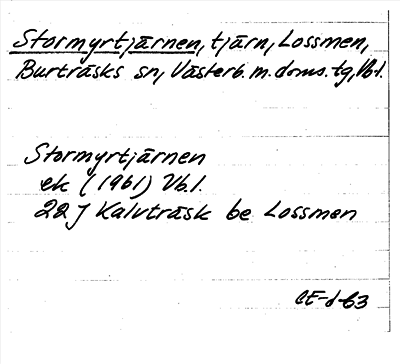 Stormyrtjärnen, tjärn, Lossmen,
Burträsks sn, Västerb. m. doms. tg, Vb.l.
Stormyrtjärnen
ek (1961) Vb.l.
22J Kalvträsk be Lossmen
CE-d-63